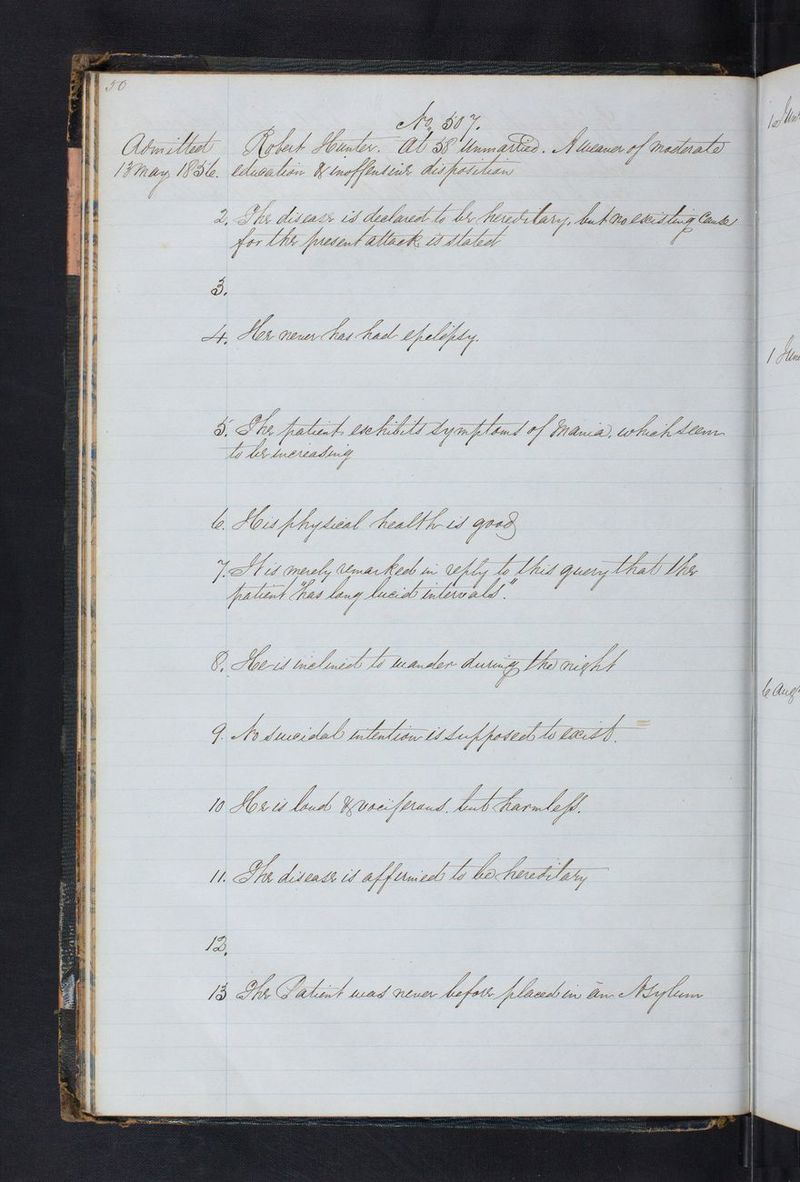 50
No 507.
Admitted Robert Hunter. Æt 58 Unmarried. A weaver of moderate
13 May 1856. education & inoffensive disposition
2. The disease is declared to be hereditary, but no existing cause
for the present attack is stated
3.
4. He never has had epilepsy.
5. The patient exhibits symptoms of Mania, which seem
to be increasing
6. His physical health is good
7. It is merely remarked in reply to this query that the
patient "has long lucid intervals".
8. He is inclined to wander during the night
9. No suicidal intention is supposed to exist.
10 He is loud & vociferous, but harmless.
11. The disease is affirmed to be hereditary
12.
13 The Patient was never before placed in an Asylum
1 June
6 Aug